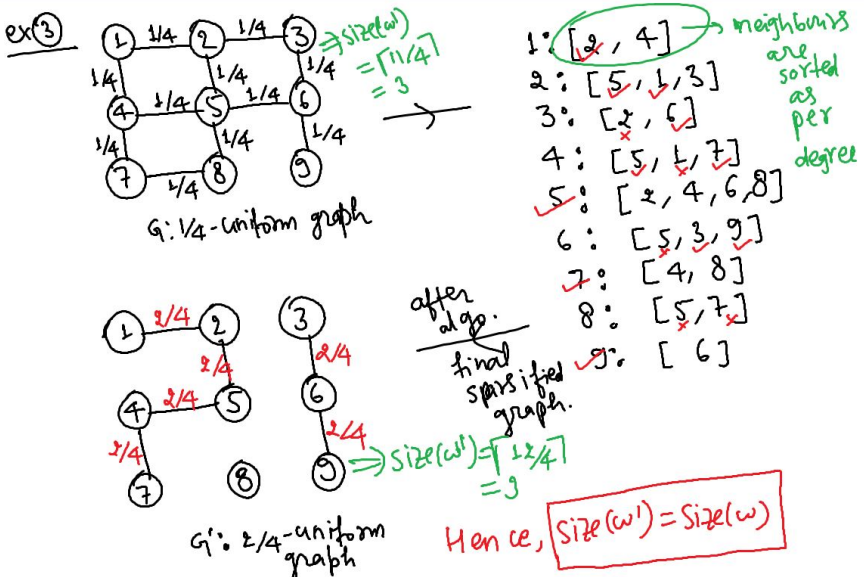 ex③
1 1/4 2 1/4 3 ⇒ size(w)
= ⌈11/4⌉
= 3
1/4 1/4 1/4
4 1/4 5 1/4 6
1/4 1/4 1/4
7 1/4 8 9
G: 1/4-uniform graph
1: [2, 4] → neighbours are sorted as per degree
2: [5, 1, 3]
3: [2, 6]
4: [5, 1, 7]
5: [2, 4, 6, 8]
6: [5, 3, 9]
7: [4, 8]
8: [5, 7]
9: [6]
after algo.
final sparsified graph.
1 2/4 2 3
2/4 2/4
4 2/4 5 6
2/4 2/4
7 8 9 ⇒ size(w') = ⌈12/4⌉
= 3
G': 2/4-uniform graph
Hence, size(w') = size(w)